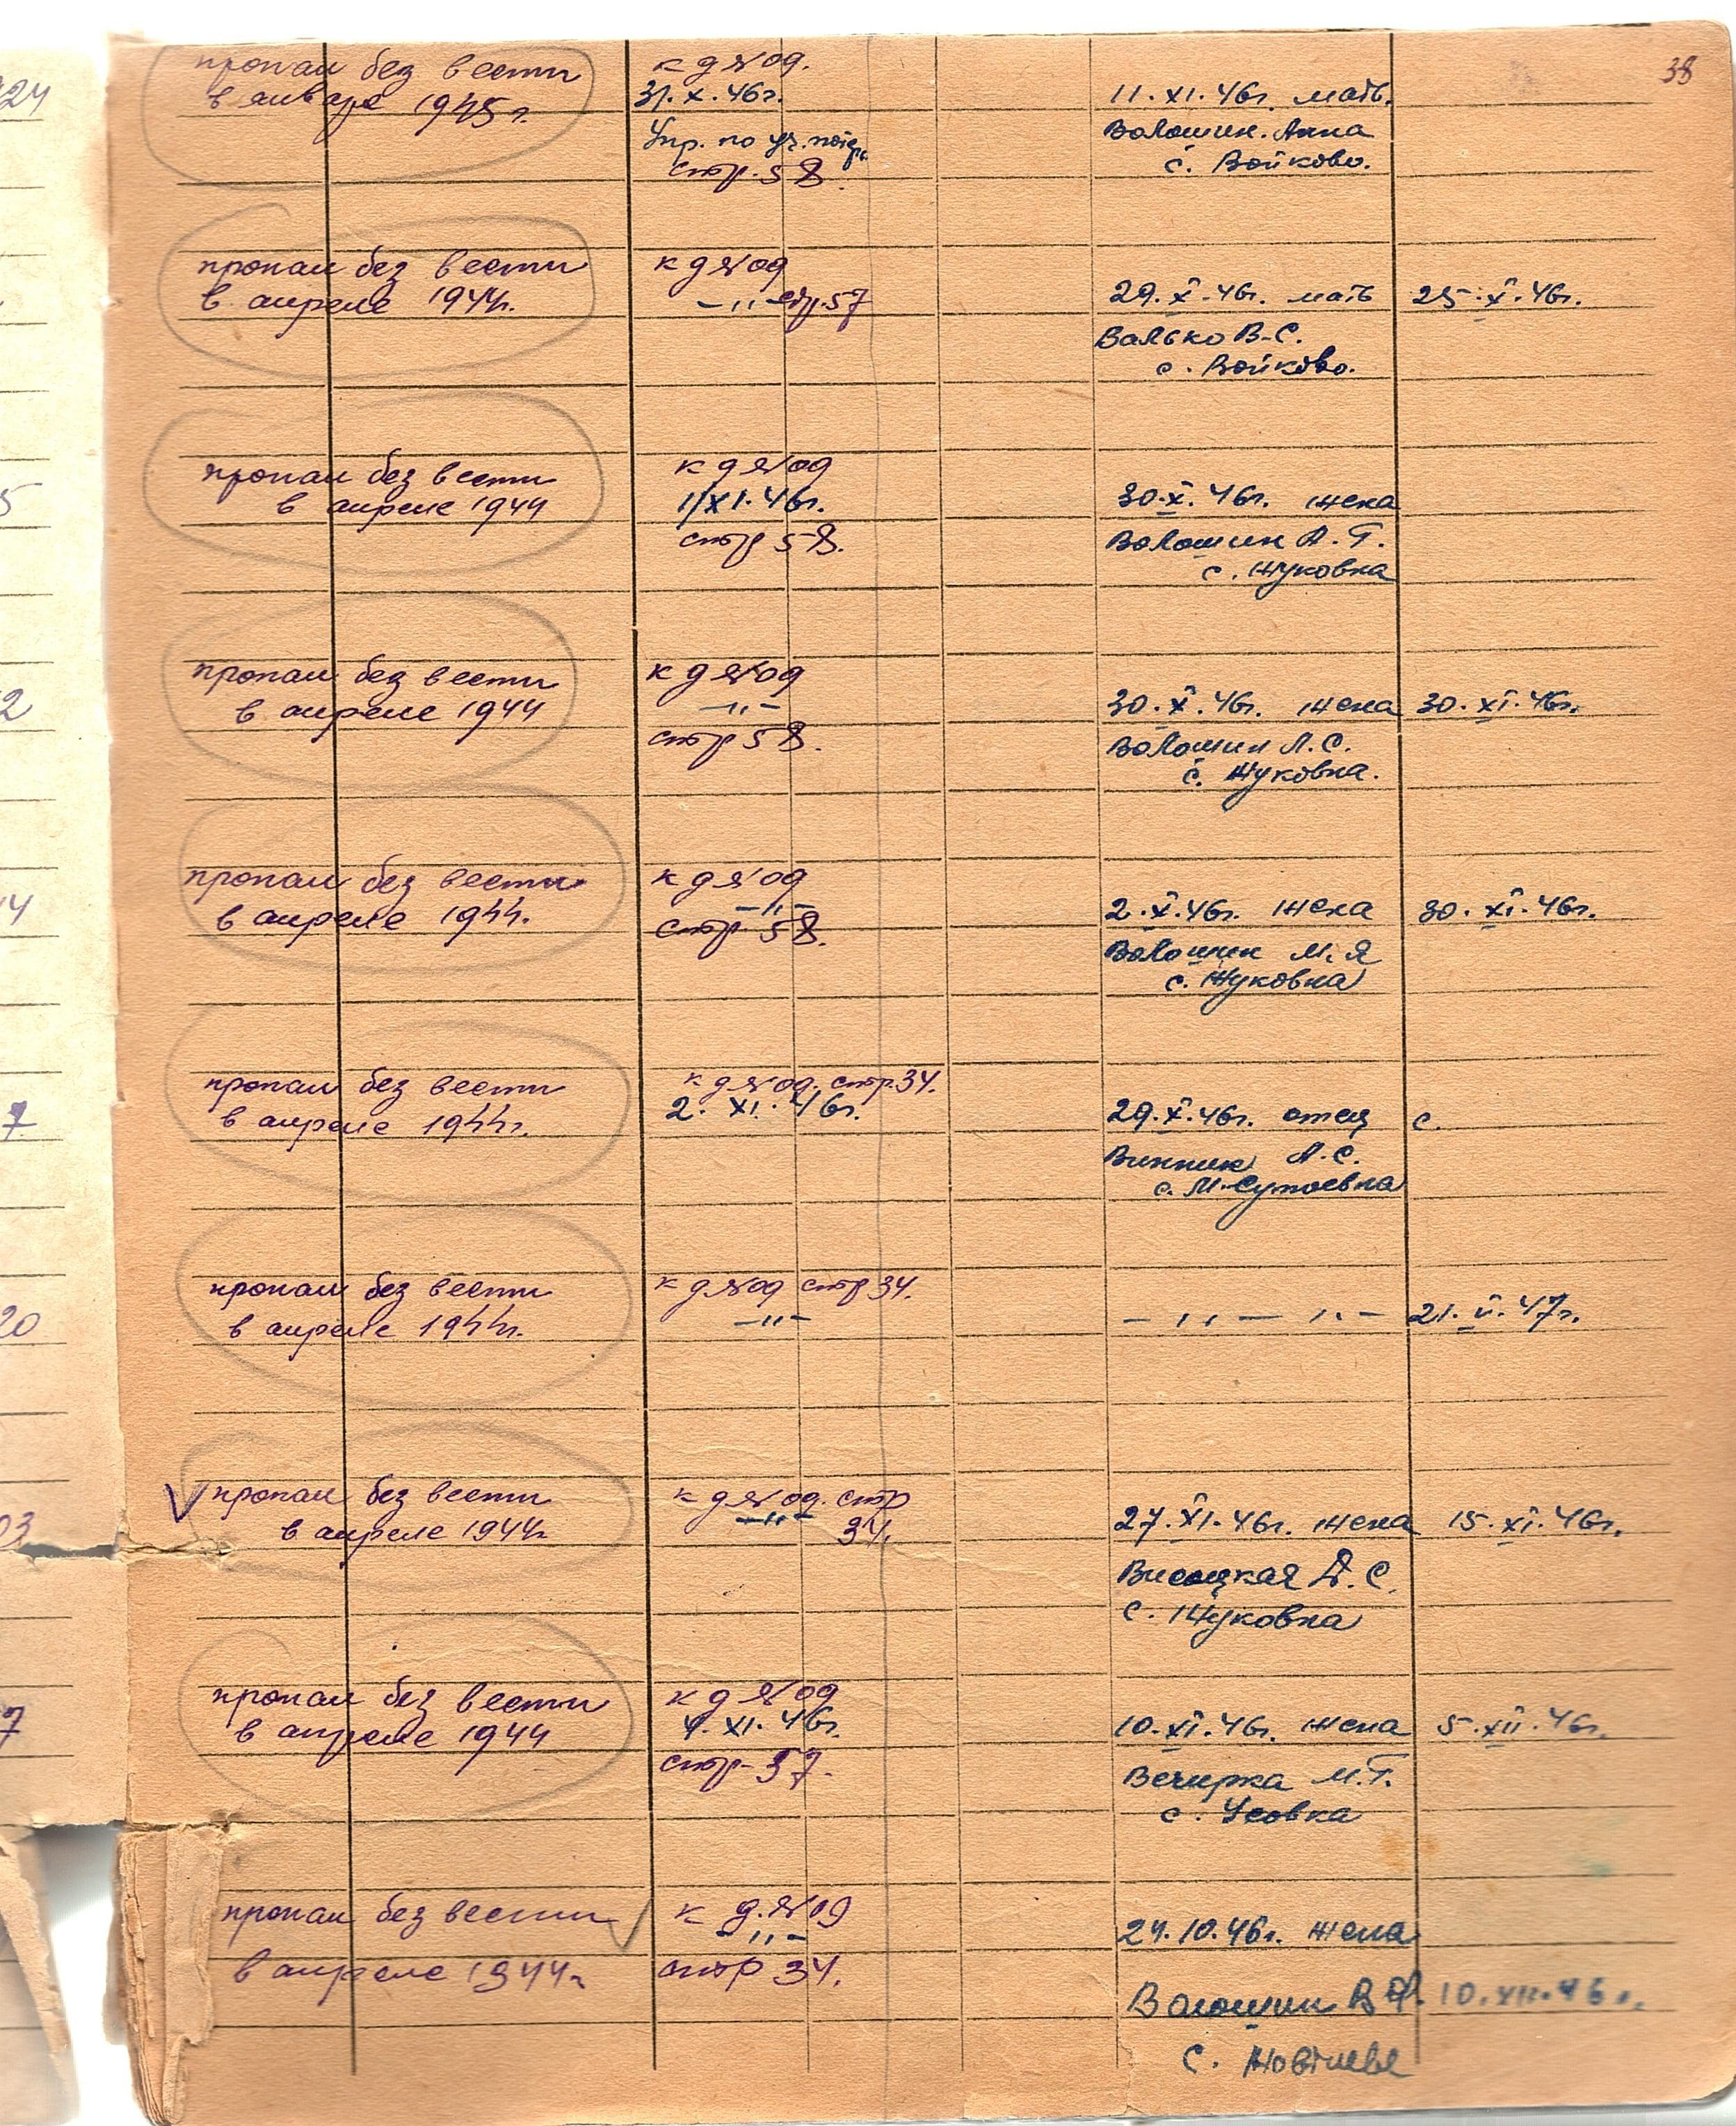 38
пропал без вести
в январе 1945 г.
к д № 09.
31. X. 46г.
Упр. по
стр. 58.
11. XI. 46г. мать.
Волошин. Анна
с. Войково.
пропал без вести
в апреле 1944г.
к д № 09
—„— стр. 57
29. X. 46г. мать
Валько В.С.
с. Войково.
25. X. 46г.
пропал без вести
в апреле 1944
к д № 09
1/XI. 46г.
стр 58.
30. X. 46г. жена
Волошин А. Г.
с. Жуковка
пропал без вести
в апреле 1944
к д № 09
—„—
стр 58.
30. X. 46г. жена
Волошин Л. С.
с. Жуковка.
30. XI. 46г.
пропал без вести
в апреле 1944.
к д № 09
—„—
стр 58.
2. X. 46г. жена
Волошин М. Я
с. Жуковка
30. XI. 46г.
пропал без вести
в апреле 1944г.
к д № 09. стр. 34.
2. XI. 46г.
29. X. 46г. отец
Винник А. С.
с. М-Супоевка
с.
пропал без вести
в апреле 1944г.
к д № 09 стр 34.
—„—
— „ — „ —
21. II. 47г.
пропал без вести
в апреле 1944г
к д № 09. стр
—„—
34.
27. XI. 46г. жена
Висоцкая А. С.
с. Жуковка
15. XI. 46г.
пропал без вести
в апреле 1944
к д № 09
4. XI. 46г.
стр- 37.
10. XI. 46г. жена
Вечирка М. Г.
с. Усовка
5. XII. 46г.
пропал без вести
в апреле 1944г
к д. № 09
—„—
стр 34.
24. 10. 46г. жена
Волошин В Ф.
10. XII. 46г.
с.
24
5
2
14
7
20
03
7